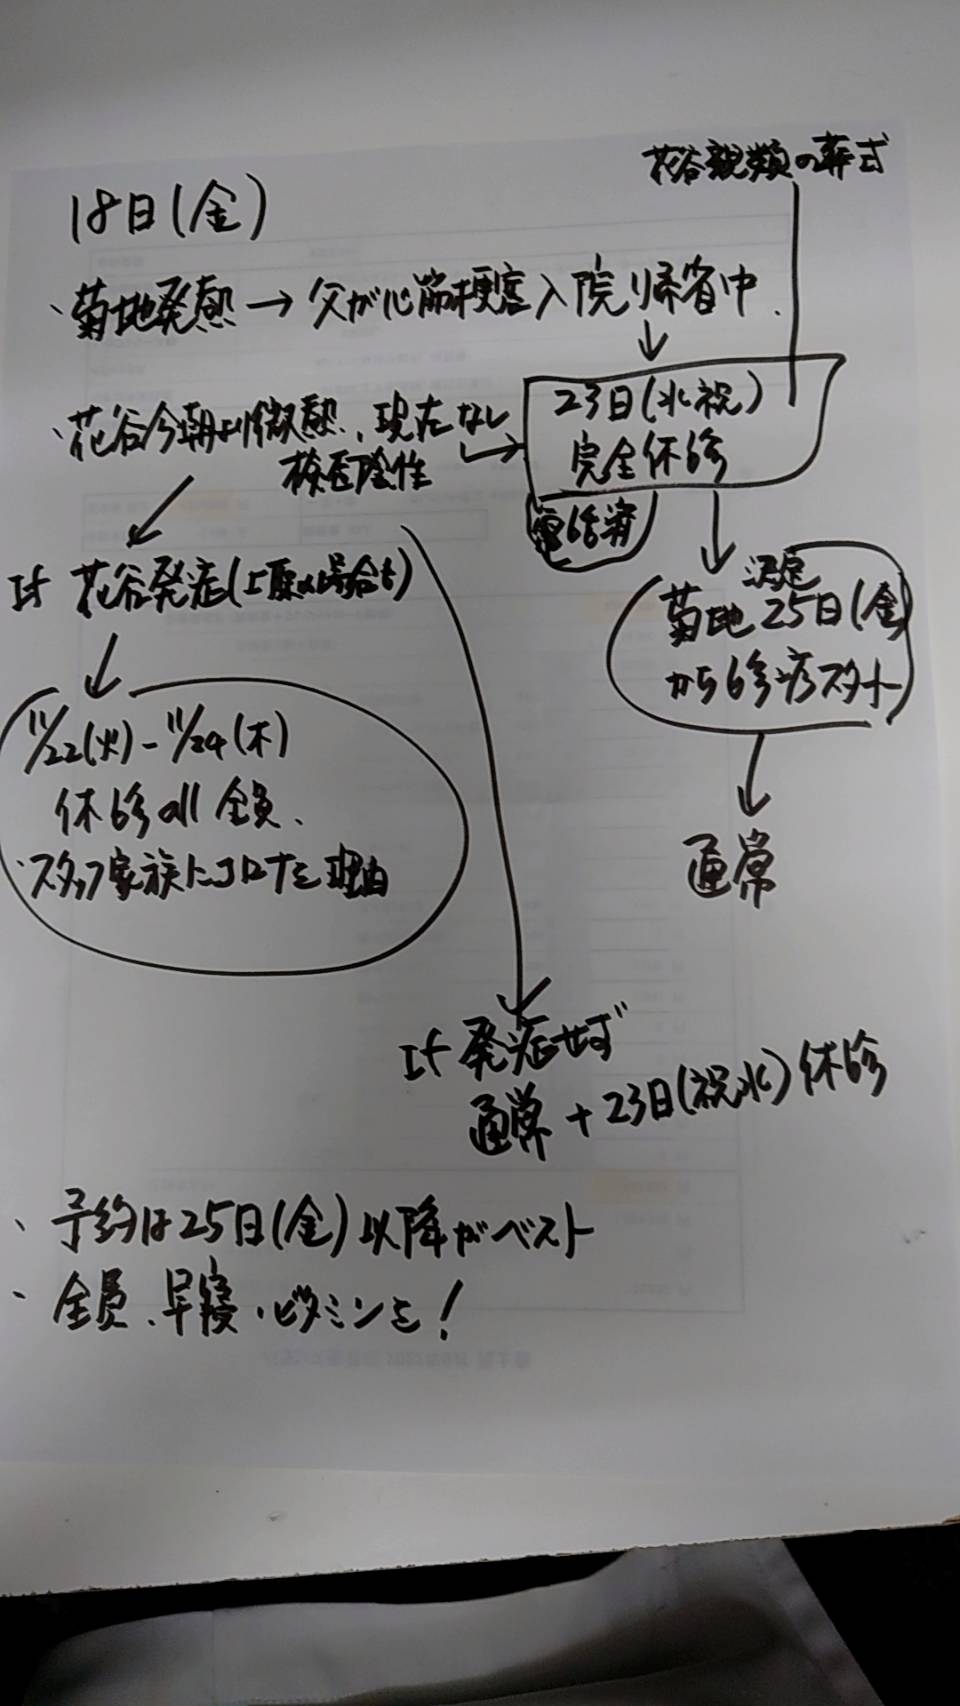 花谷親類の葬式
18日(金)
・菊地発熱→父が心筋梗塞入院り帰省中.
・花谷今朝より微熱、現在なし
検査陰性
23日(水祝)
完全休診
電話済
If 花谷発症(上原の場合も)
11/22(火)-11/24(木)
休診all全員、
・スタッフ家族にコロナを理由
測定
菊地25日(金)
から診療スタート
通常
If 発症せず
通常+23日(祝水)休診
、予約は25日(金)以降がベスト
、全員、早寝・ビタミンを!